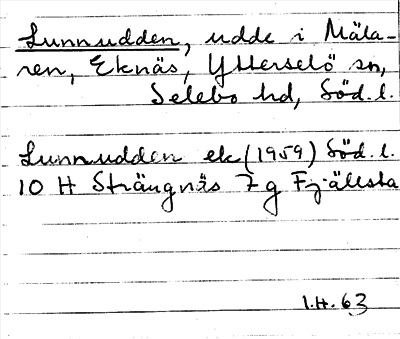 Lunnudden, udde i Mäla-
ren, Eknäs, Ytterselö sn,
Selebo hd, Söd. l.
Lunnudden ek (1959) Söd. l.
10 H Strängnäs 7 g Fjällsta
I.H. 63